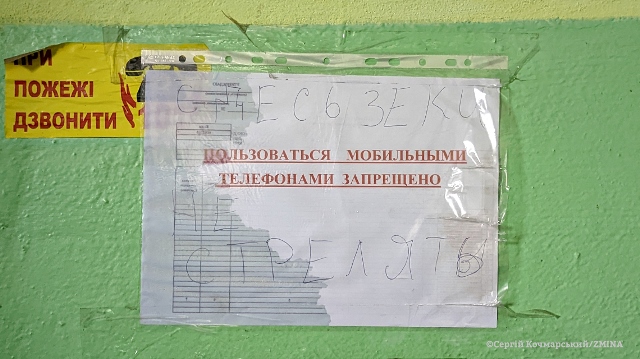 ПРИ
ПОЖЕЖІ
ДЗВОНИТИ
ЗЕКИ
ПОЛЬЗОВАТЬСЯ МОБИЛЬНЫМИ
ТЕЛЕФОНАМИ ЗАПРЕЩЕНО
НЕ
СТРЕЛЯТЬ
©Сергій Кочмарський/ZMINA